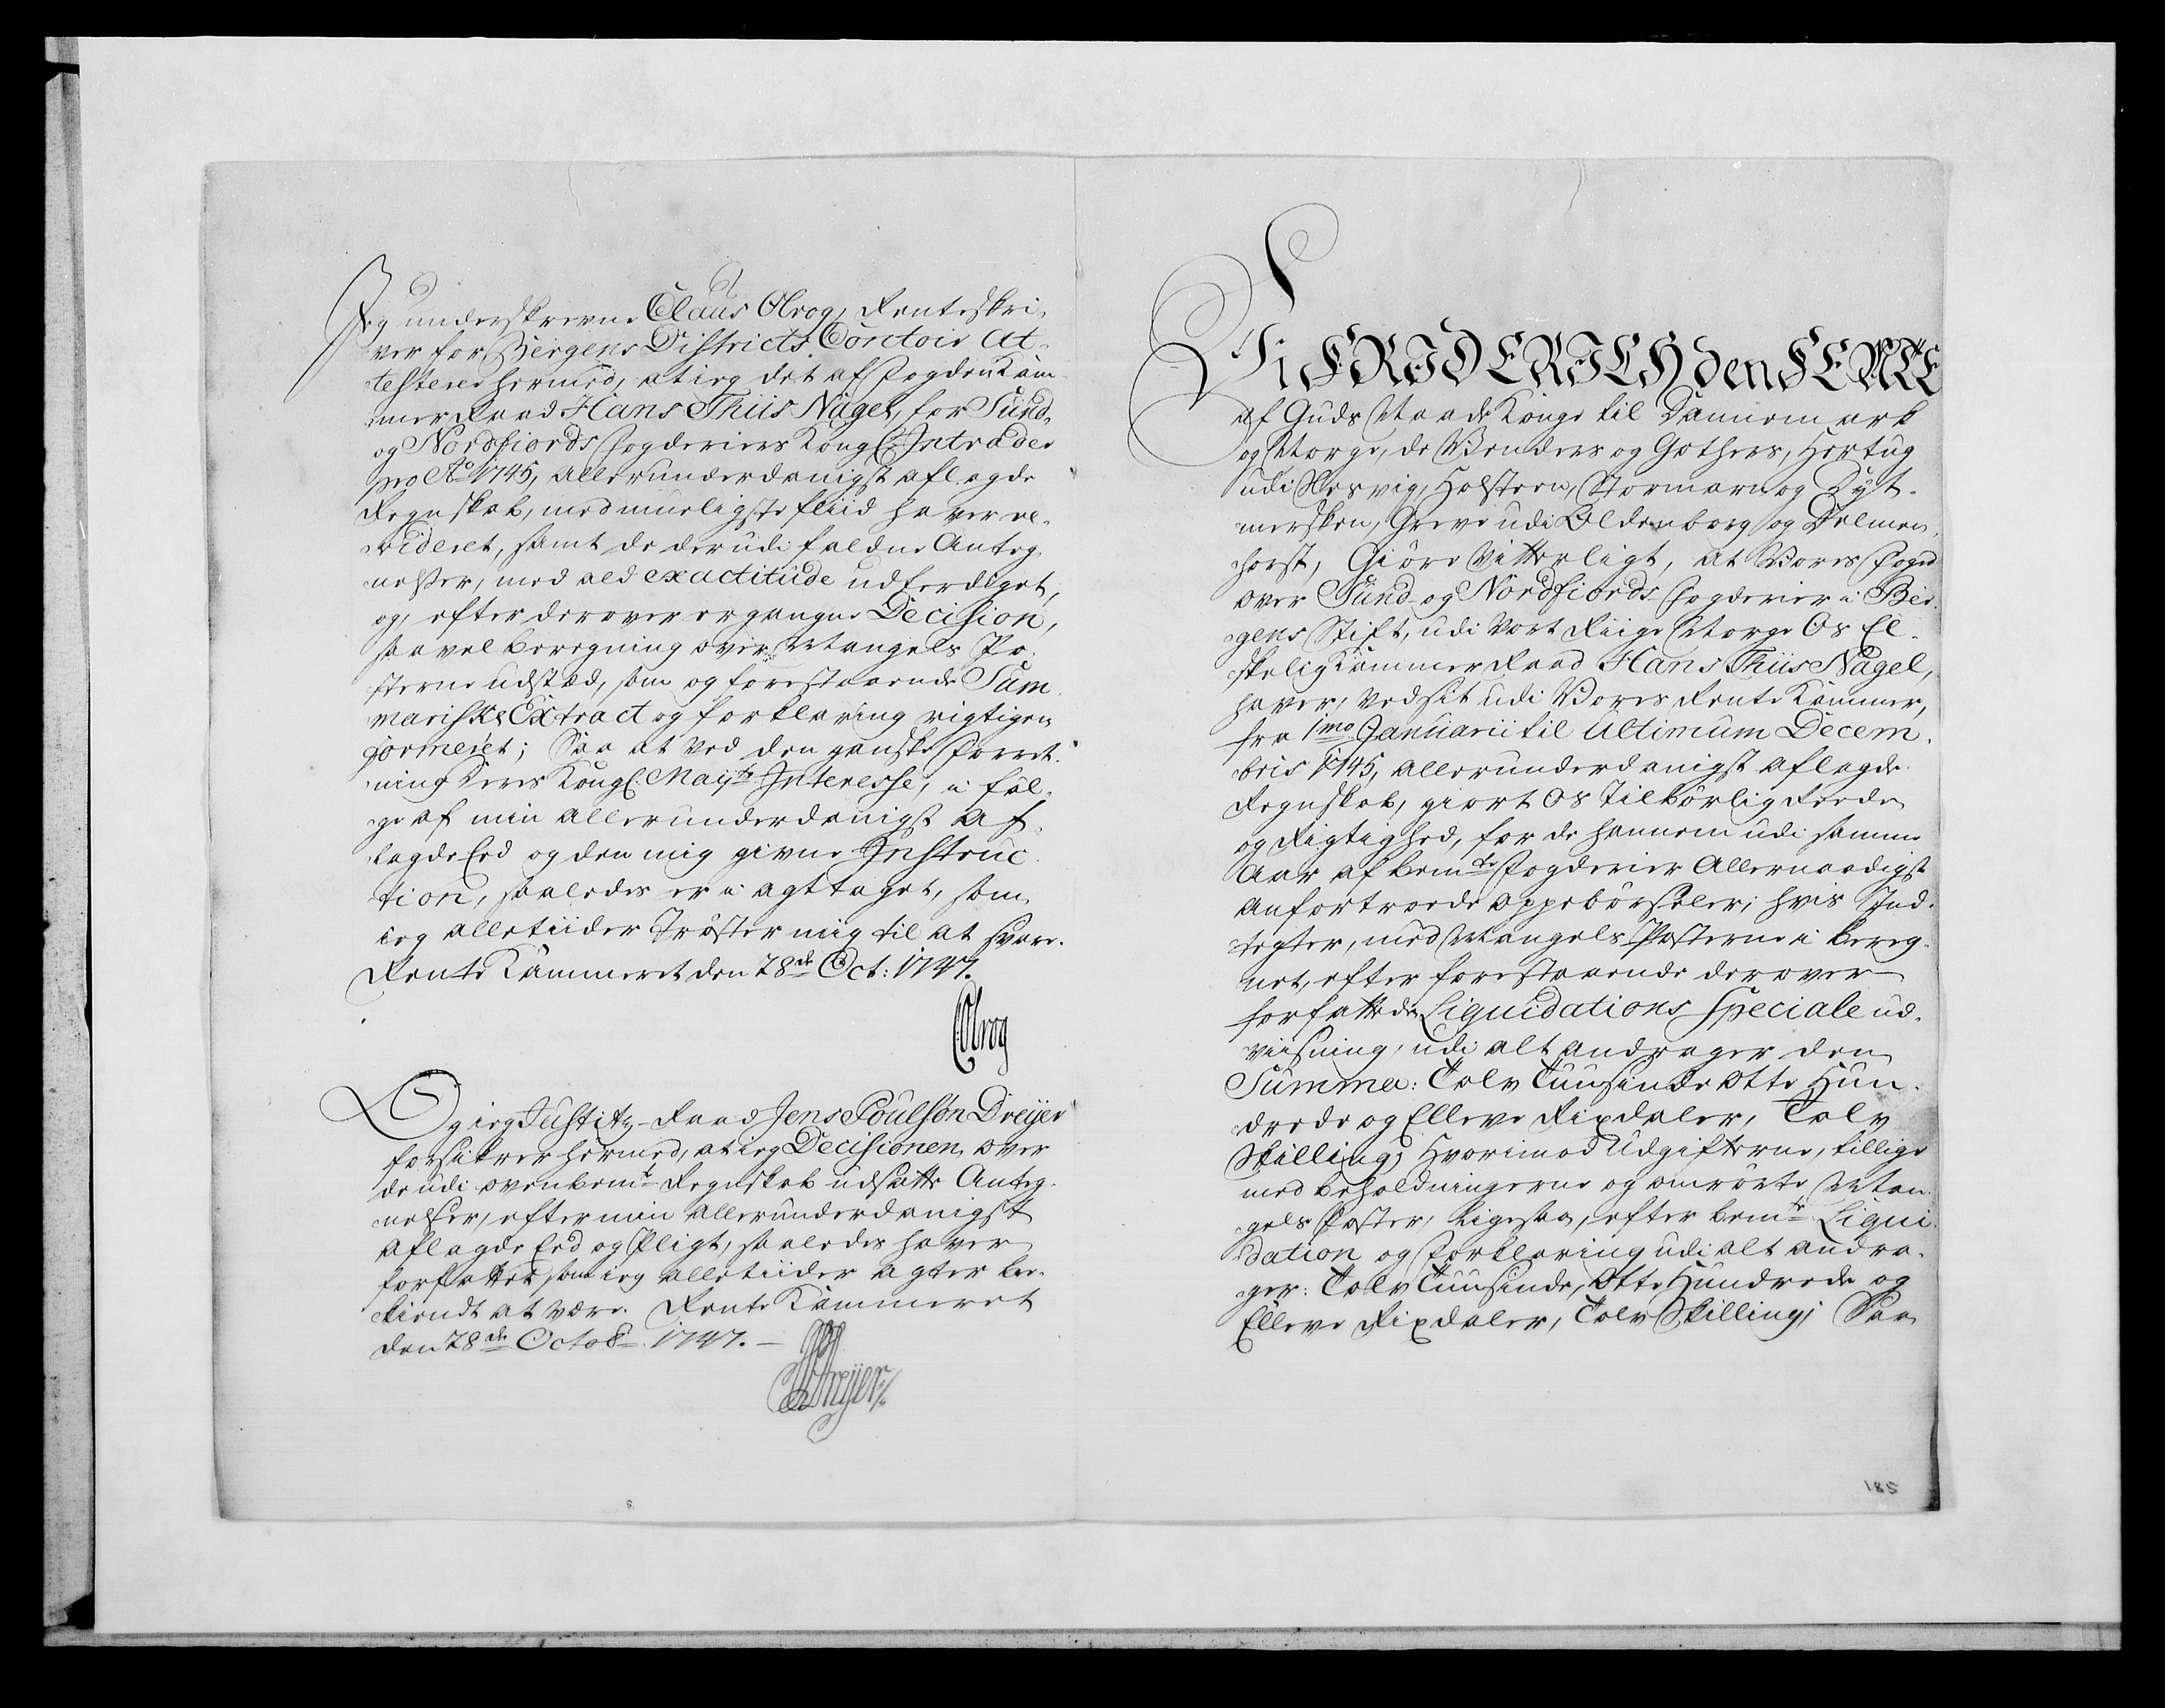 Jeg underskrevne Claus Olrog, Renteskri-
ver for Bergens Districts Contoir At-
testerer hermed, at ieg det af Fogden Kam-
mer Raad Hans Thiis Nagel, for Sund-
og Nordfiords Fogderiers Kongl. Intrader
pro Ao. 1745, allerunderdanigst aflagde
Regnskab, med mueligste fliid haver re-
videret, samt de derudi faldne Anteg-
nelser, med ald exactitude udferdiget,
og, efter derover ergangne Decision,
saavel beregning over Mangels Po-
sterne udstæd, som og forestaaende Sum-
mariske Extract og forklaring rigtigen
formeret; Saa at ved den gandske Forret-
ning Deres Kongl. Mayts Interesse, i føl-
ge af min allerunderdanigst af-
lagde Eed og den mig givne Instruc-
tion, saaledes er i agttaget, som
ieg alletiider Trøster mig til at svare.
Rente Kammeret den 28de Oct: 1747.
COlrog
Og ieg Justitz-Raad Jens Poulsøn Dreijer
forsikrer hermed, at ieg Decisionen over
de udi ovenbemte Regnskab udsatte Anteg-
nelser, efter min allerunderdanigst
aflagde Eed og Pligt, saaledes haver
forfattet, som ieg alletiider agter be-
kiendt at være. Rente Kammeret
den 28de Octob. 1747. –
JPDreijer
Vi FRIDERICH den FEMTE
af Guds Naade Konge til Dannemark
og Norge, de Venders og Gothers, Hertug
udi Slesvig, Holsteen, Stormarn og Dyt-
mersken, Greve udi Oldenborg og Delmen-
horst, Giøre Vitterligt, at Vores Foged
over Sund- og Nordfiords Fogderier i Ber-
gens Stift, udi Vort Riige Norge Os El-
skelig Kammer Raad Hans Thiis Nagel,
haver, ved sit udi Vores Rente Kammer,
fra 1mo Januarii til Ultimum Decem-
bris 1745, allerunderdanigst aflagde
Regnskab, giort Os Tilbørlig Reede
og Rigtighed, for de hannem udi samme
Aar af bemte Fogderier Allernaadigst
Anfortroede oppebørseler; hvis Ind-
tegter, med Mangels Posterne i bereg-
net, efter forestaaende derover
forfattede Liquidations Speciale ud-
viisning, udi alt andrager den
Summa: Tolv Tuusinde Otte Hun-
drede og Elleve Rixdaler, Tolv
Skilling; Hvorimod Udgifterne, tillige
med beholdningerne og omrørte Man-
gels Poster, ligesaa, efter bemte Liqui-
dation og Forklaring udi alt andra-
ger: Tolv Tuusinde, Otte Hundrede og
Elleve Rixdaler, Tolv Skilling; Saa
185